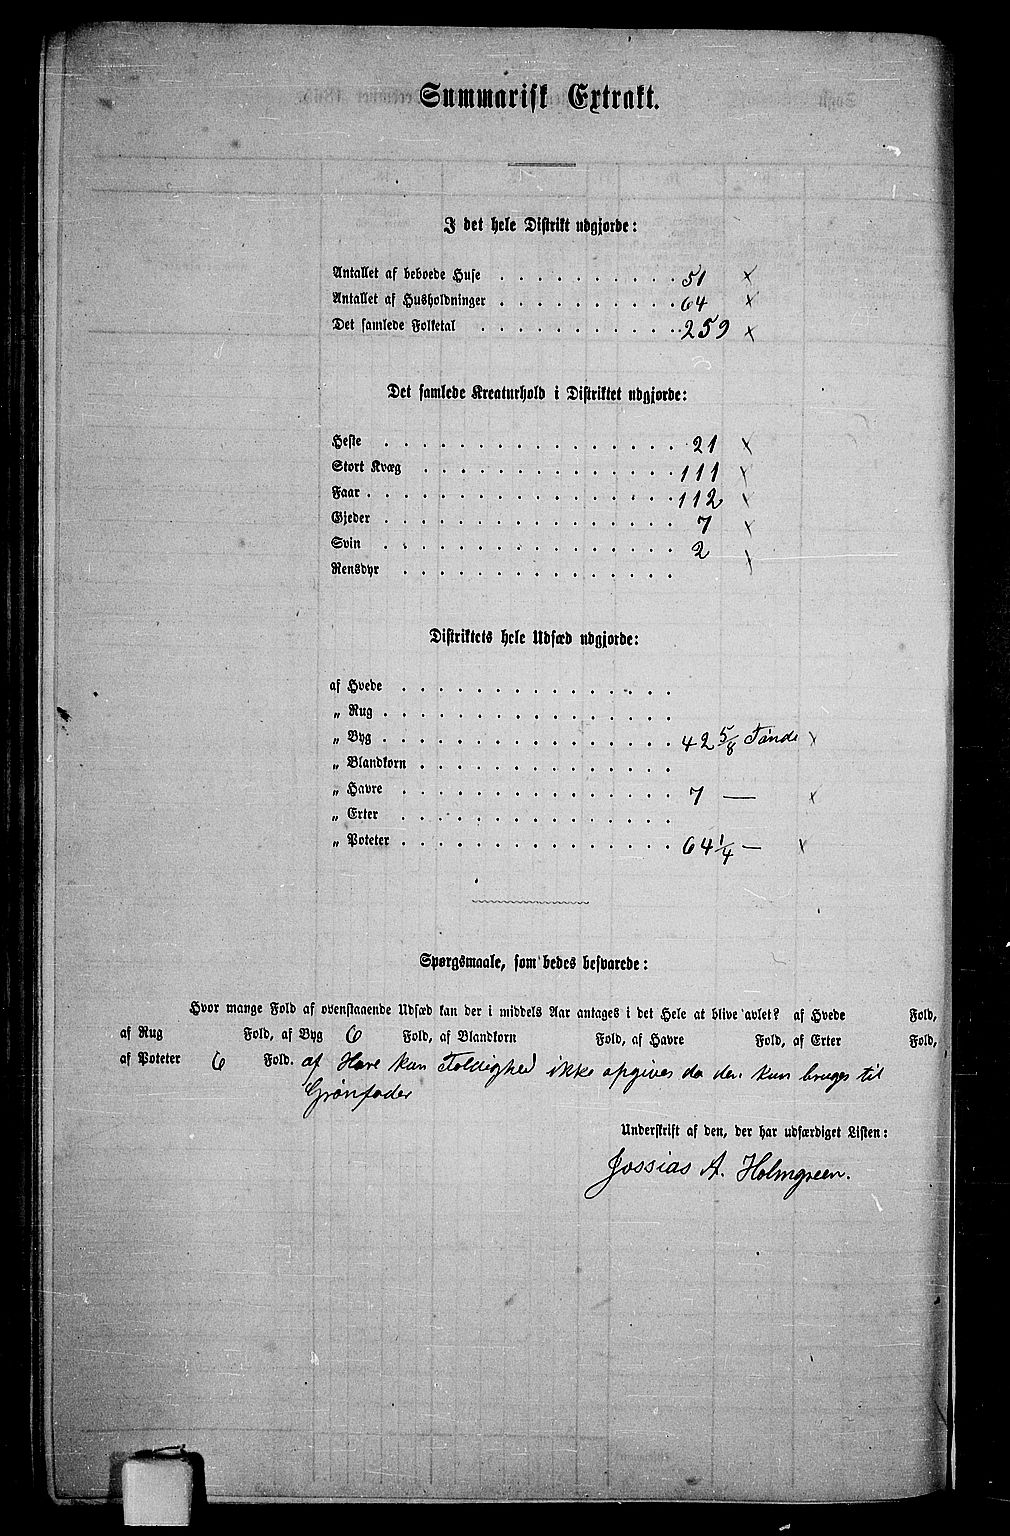 Summarisk Extrakt.
I det hele Distrikt udgjorde:
Antallet af beboede Huse . . . . . . . . . . 51 ×
Antallet af Husholdninger . . . . . . . . . . 64 ×
Det samlede Folketal . . . . . . . . . . . 259 ×
Det samlede Kreaturhold i Distriktet udgjorde:
Heste . . . . . . . . . . . . . . . . 21 ×
Stort Kvæg . . . . . . . . . . . . . . 111 ×
Faar . . . . . . . . . . . . . . . . . 112 ×
Gjeder . . . . . . . . . . . . . . . . 7 ×
Svin . . . . . . . . . . . . . . . . 2 ×
Rensdyr . . . . . . . . . . . . . . .
Distriktets hele Udsæd udgjorde:
af Hvede . . . . . . . . . . . . . . .
„ Rug . . . . . . . . . . . . . . . .
„ Byg . . . . . . . . . . . . . . . . 42 5/8 Tønde ×
„ Blandkorn . . . . . . . . . . . . . .
„ Havre . . . . . . . . . . . . . . . 7 — ×
„ Erter . . . . . . . . . . . . . . .
„ Poteter . . . . . . . . . . . . . . . 64 1/4 — ×
Spørgsmaale, som bedes besvarede:
Hvor mange Fold af ovenstaaende Udsæd kan der i middels Aar antages i det Hele at blive avlet? af Hvede Fold,
af Rug Fold, af Byg 6 Fold, af Blandkorn Fold, af Havre Fold, af Erter Fold,
af Poteter 6 Fold. af Havre kan Foldighed ikke opgives da den kun bruges til
Grønfoder
Underskrift af den, der har udfærdiget Listen:
Jossias A. Holmgreen.